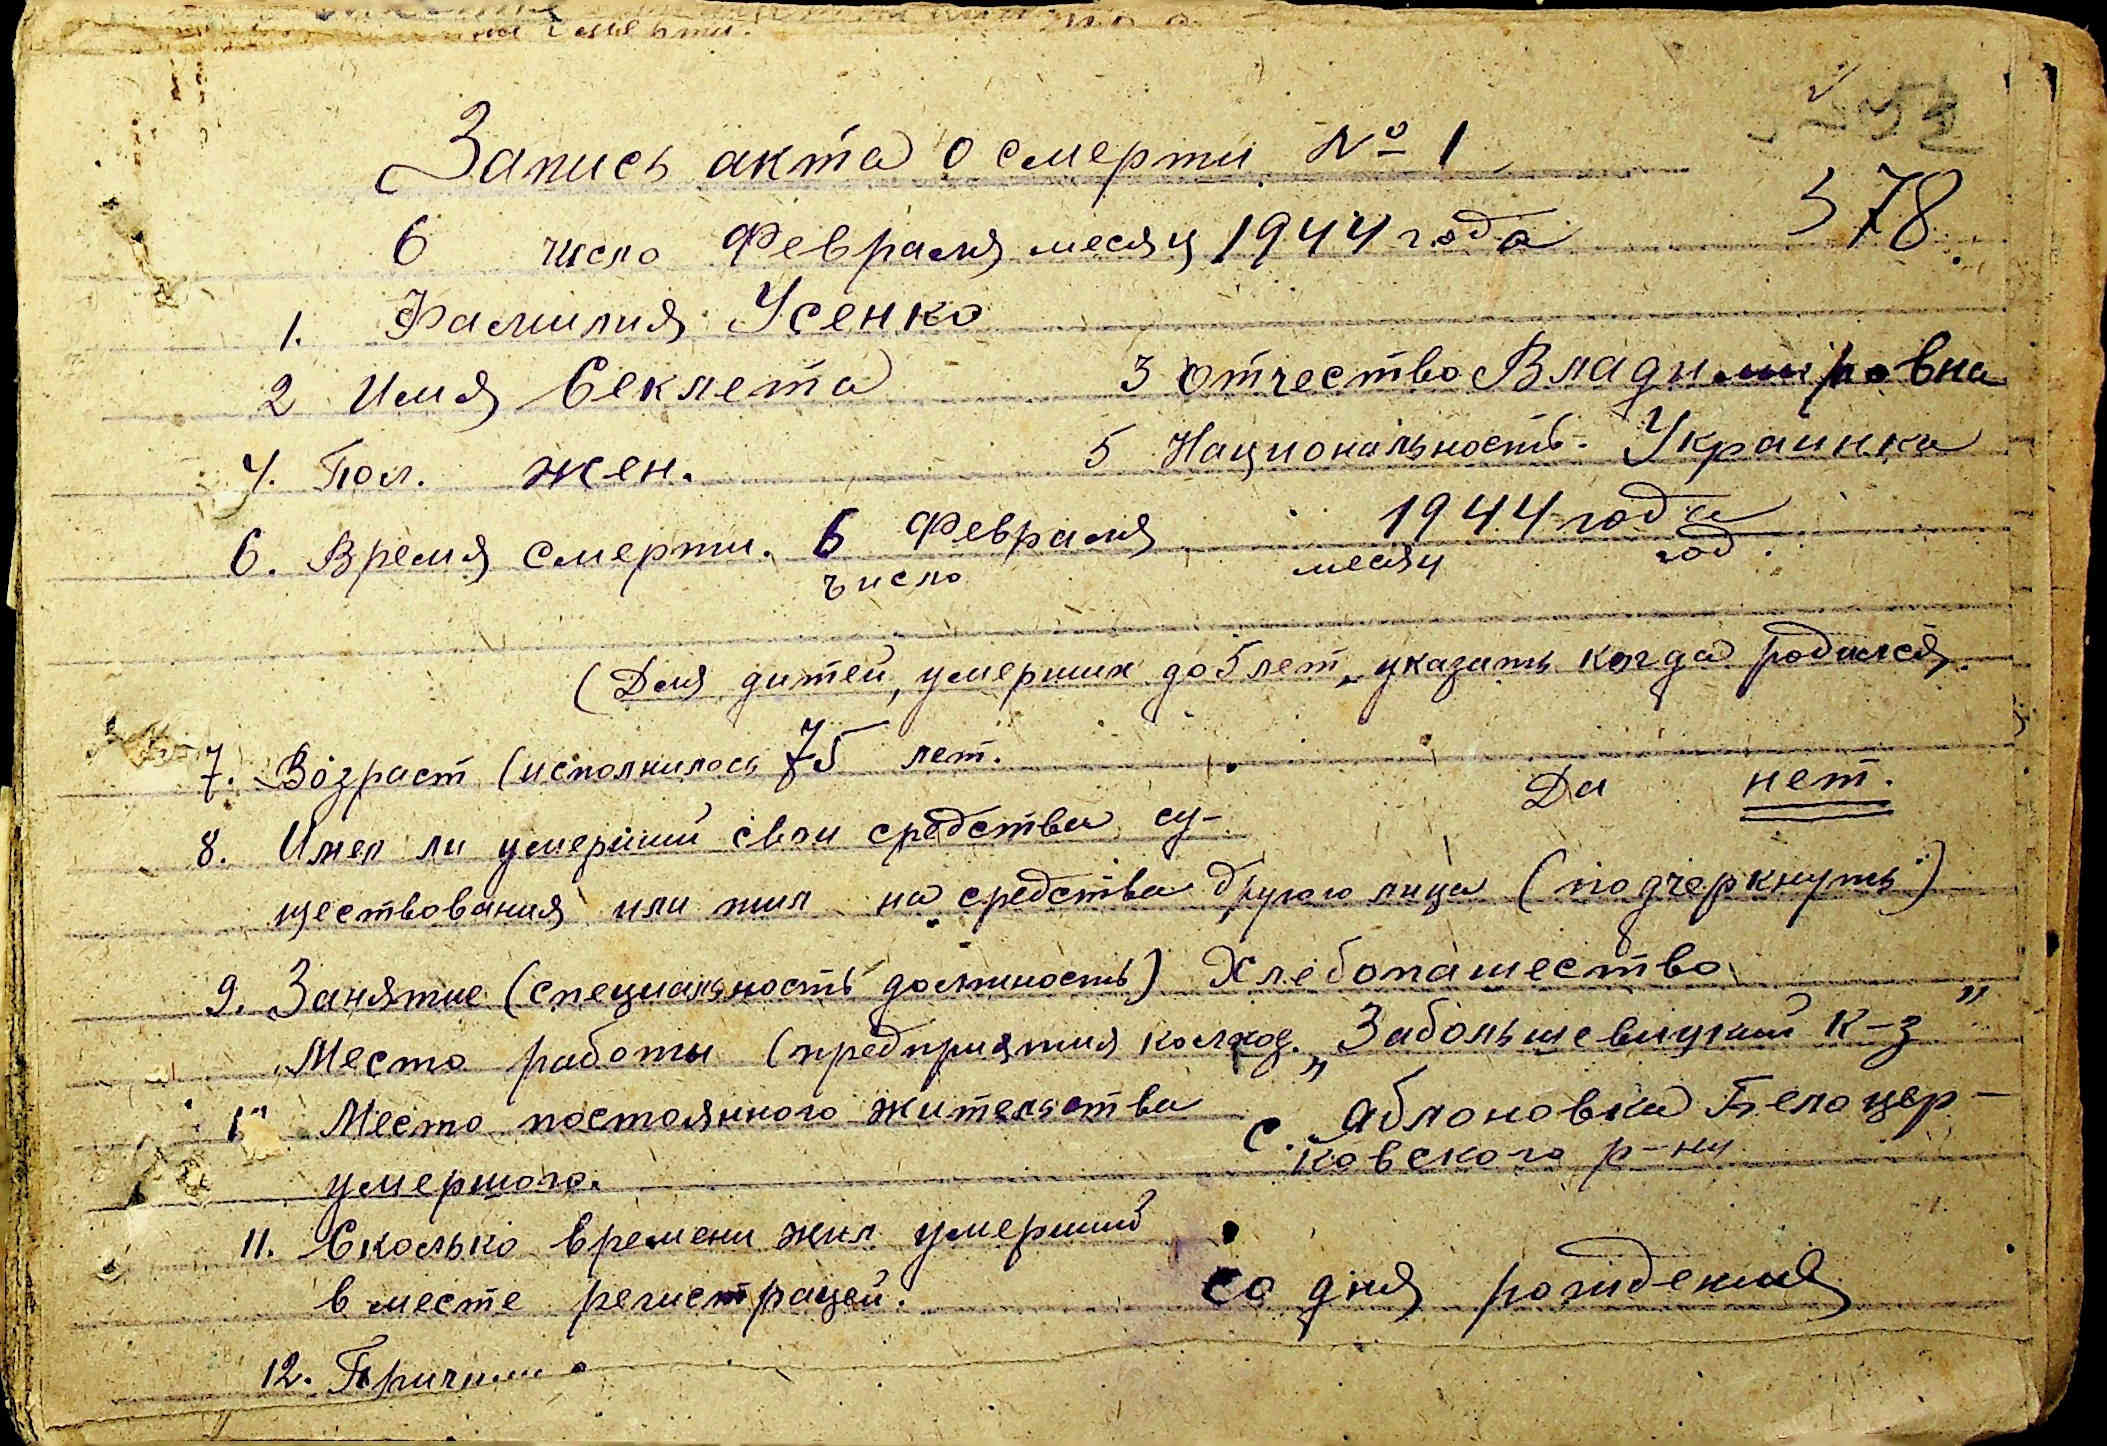 на смерти.
Запись акта о смерти № 1
578.
6 число Февраля месяц 1944 года
1. Фамилия Усенко
2 Имя Секлета 3 Отчество Владимировна
4. Пол. жен. 5 Национальность. Украинка
6. Время смерти. 6 Февраля 1944 года
число месяц год.
(Для дитей, умерших до 5 лет, указать когда родился.
7. Возраст (исполнилось 75 лет.
Да нет.
8. Имел ли умерший свои средства су-
ществования или жил на средства другого лица (подчеркнуть)
9. Занятие (специальность должность) Хлебопашество
Место работы (предприятия колхоз. „Забольшевицкий к-з"
Место постоянного жительства с. Яблоновка Белоцер-
ковского р-ну
умершого.
11. Сколько времени жил умерший
в месте регистрацеи. со дня рождения
12. Причина